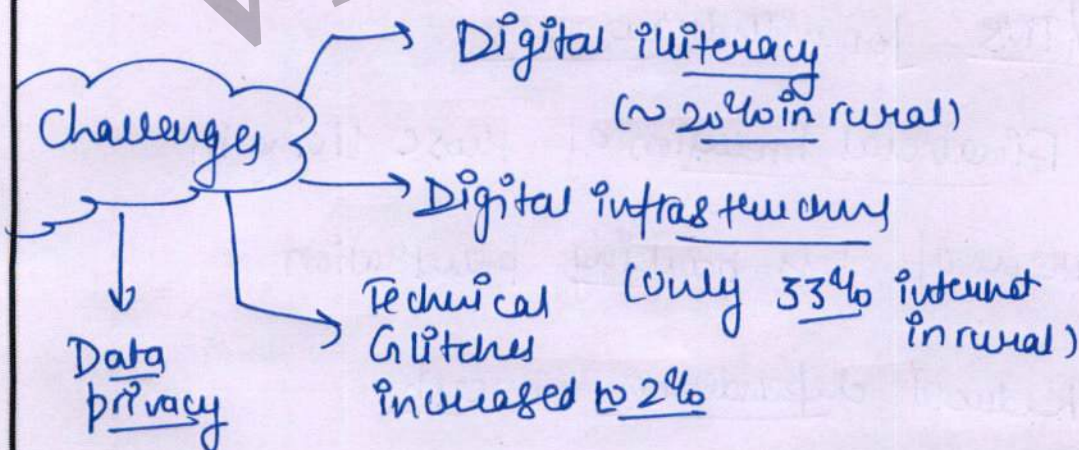 Challenges
Digital illiteracy
(~ 20% in rural)
Digital infrastructure
(only 33% internet
in rural)
Technical
Glitches
increased to 2%
Data
privacy